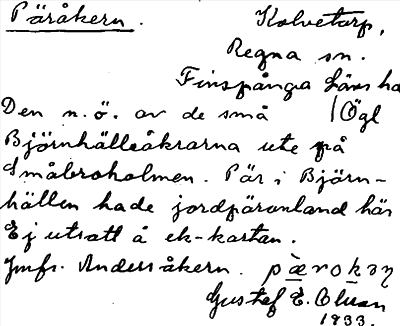 Päråkern.
Kolvetorp,
Regna sn.
Finspånga läns hd
Den n.ö. av de små (Ögl
Björnhälleåkrarna ute på
Småbroholmen. Pär i Björn-
hällen hade jordpäronland här
Ej utsatt å ek-kartan.
Jmfr. Andersåkern.
Gustaf E. Olsson
1933.